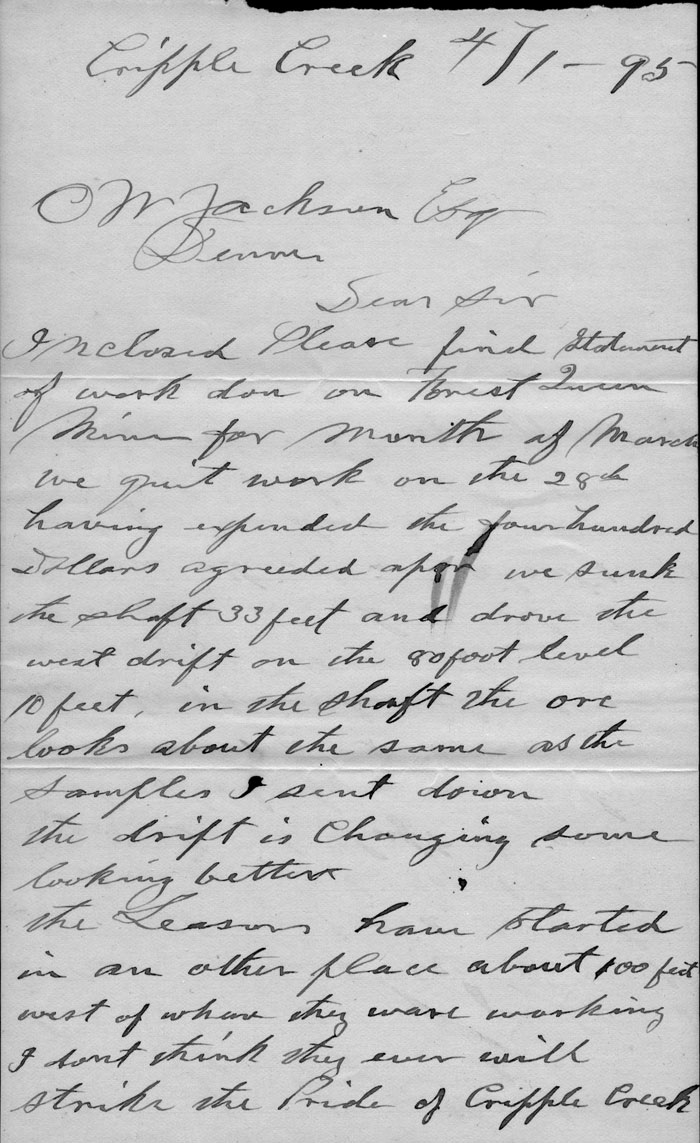 Cripple Creek 4/1-95
O W Jackson Esq
Denver
Dear Sir
Inclosed Please find Statement
of work don on Forest Queen
Mine for Month of March
we quit work on the 28th
having expended the four hundred
Dollars agreeded apon we sunk
the shaft 33 feet and drove the
west drift on the 80 foot level
10 feet, in the shaft the ore
looks about the same as the
samples I sent down
the drift is Changing some
looking better
the Leasors have started
in an other place about 100 feet
west of whare they ware working
I dont think they ever will
strike the Pride of Cripple Creek